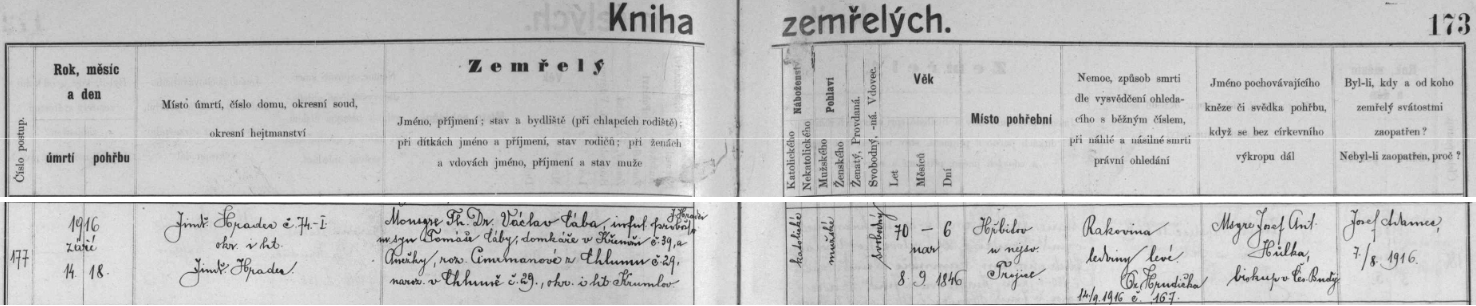 Kniha zemřelých.
173
Číslo postup.
Rok, měsíc
a den
úmrtí pohřbu
Místo úmrtí, číslo domu, okresní soud,
okresní hejtmanství
Zemřelý
Jméno, příjmení; stav a bydliště (při chlapcích rodiště);
při dítkách jméno a příjmení, stav rodičů; při ženách
a vdovách jméno, příjmení a stav muže
Katolického
Nekatolického
Náboženst.
Mužského
Ženského
Pohlaví
Ženatý, Provdaná.
Svobodný, -ná. Vdovec.
Věk
Let
Měsíců
Dní
Místo pohřební
Nemoc, způsob smrti
dle vysvědčení ohleda-
cího s běžným číslem,
při náhlé a násilné smrti
právní ohledání
Jméno pochovávajícího
kněze či svědka pohřbu,
když se bez církevního
výkropu dál
Byl-li, kdy a od koho
zemřelý svátostmi
zaopatřen?
Nebyl-li zaopatřen, proč?
177
1916
září
14. 18.
Jindř. Hradec č. 74-I
okr. i ht.
Jindř. Hradec.
Monsgre Th. Dr. Václav Cába, inful. probošt
J. Hradci
syn Tomáše Cáby, domkáře v Křenově č. 39, a
Anežky, roz. v Chlumu č. 29.
naroz. v Chlumě č. 29., okr. i ht Krumlov
katolické
mužské
svobodný
70 – 6
nar
8 9. 1846
Hřbitov
u nejsv.
Trojice
Rakovina
ledviny levé.
Dr. Hrudička
14/9. 1916 č. 167.
Msgr Josef Ant.
Hůlka,
biskup v Čes. Budj.
Josef Adamec,
7./8. 1916.